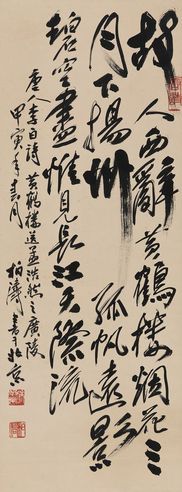 故人西辭黃鶴樓烟花三
月下揚州孤帆遠影
碧空盡惟見長江天際流
唐人李白詩黃鶴樓送孟浩然之廣陵
甲寅年春月柏濤書于北京